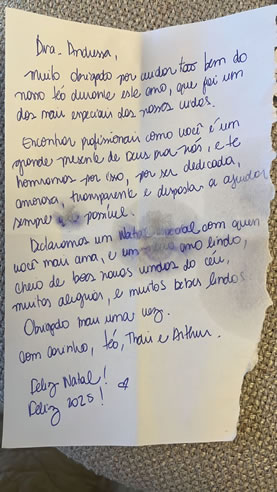 Dra. Andressa,
muito obrigado por cuidar tão bem do
nosso téo durante este ano, que foi um
dos mais especiais das nossas vidas.
Encontrar profissionais como você é um
grande presente de Deus pra nós, e te
honramos por isso, por ser dedicada,
amorosa, transparente e disposta a ajudar
sempre que possível.
Declaramos um Natal com quem
você mais ama, e um ano lindo,
cheio de boas novas vindas do céu,
muitas alegrias, e muitos bebês lindos.
Obrigado mais uma vez.
Com carinho, téo, Thais e Arthur.
Feliz Natal!
Feliz 2025!